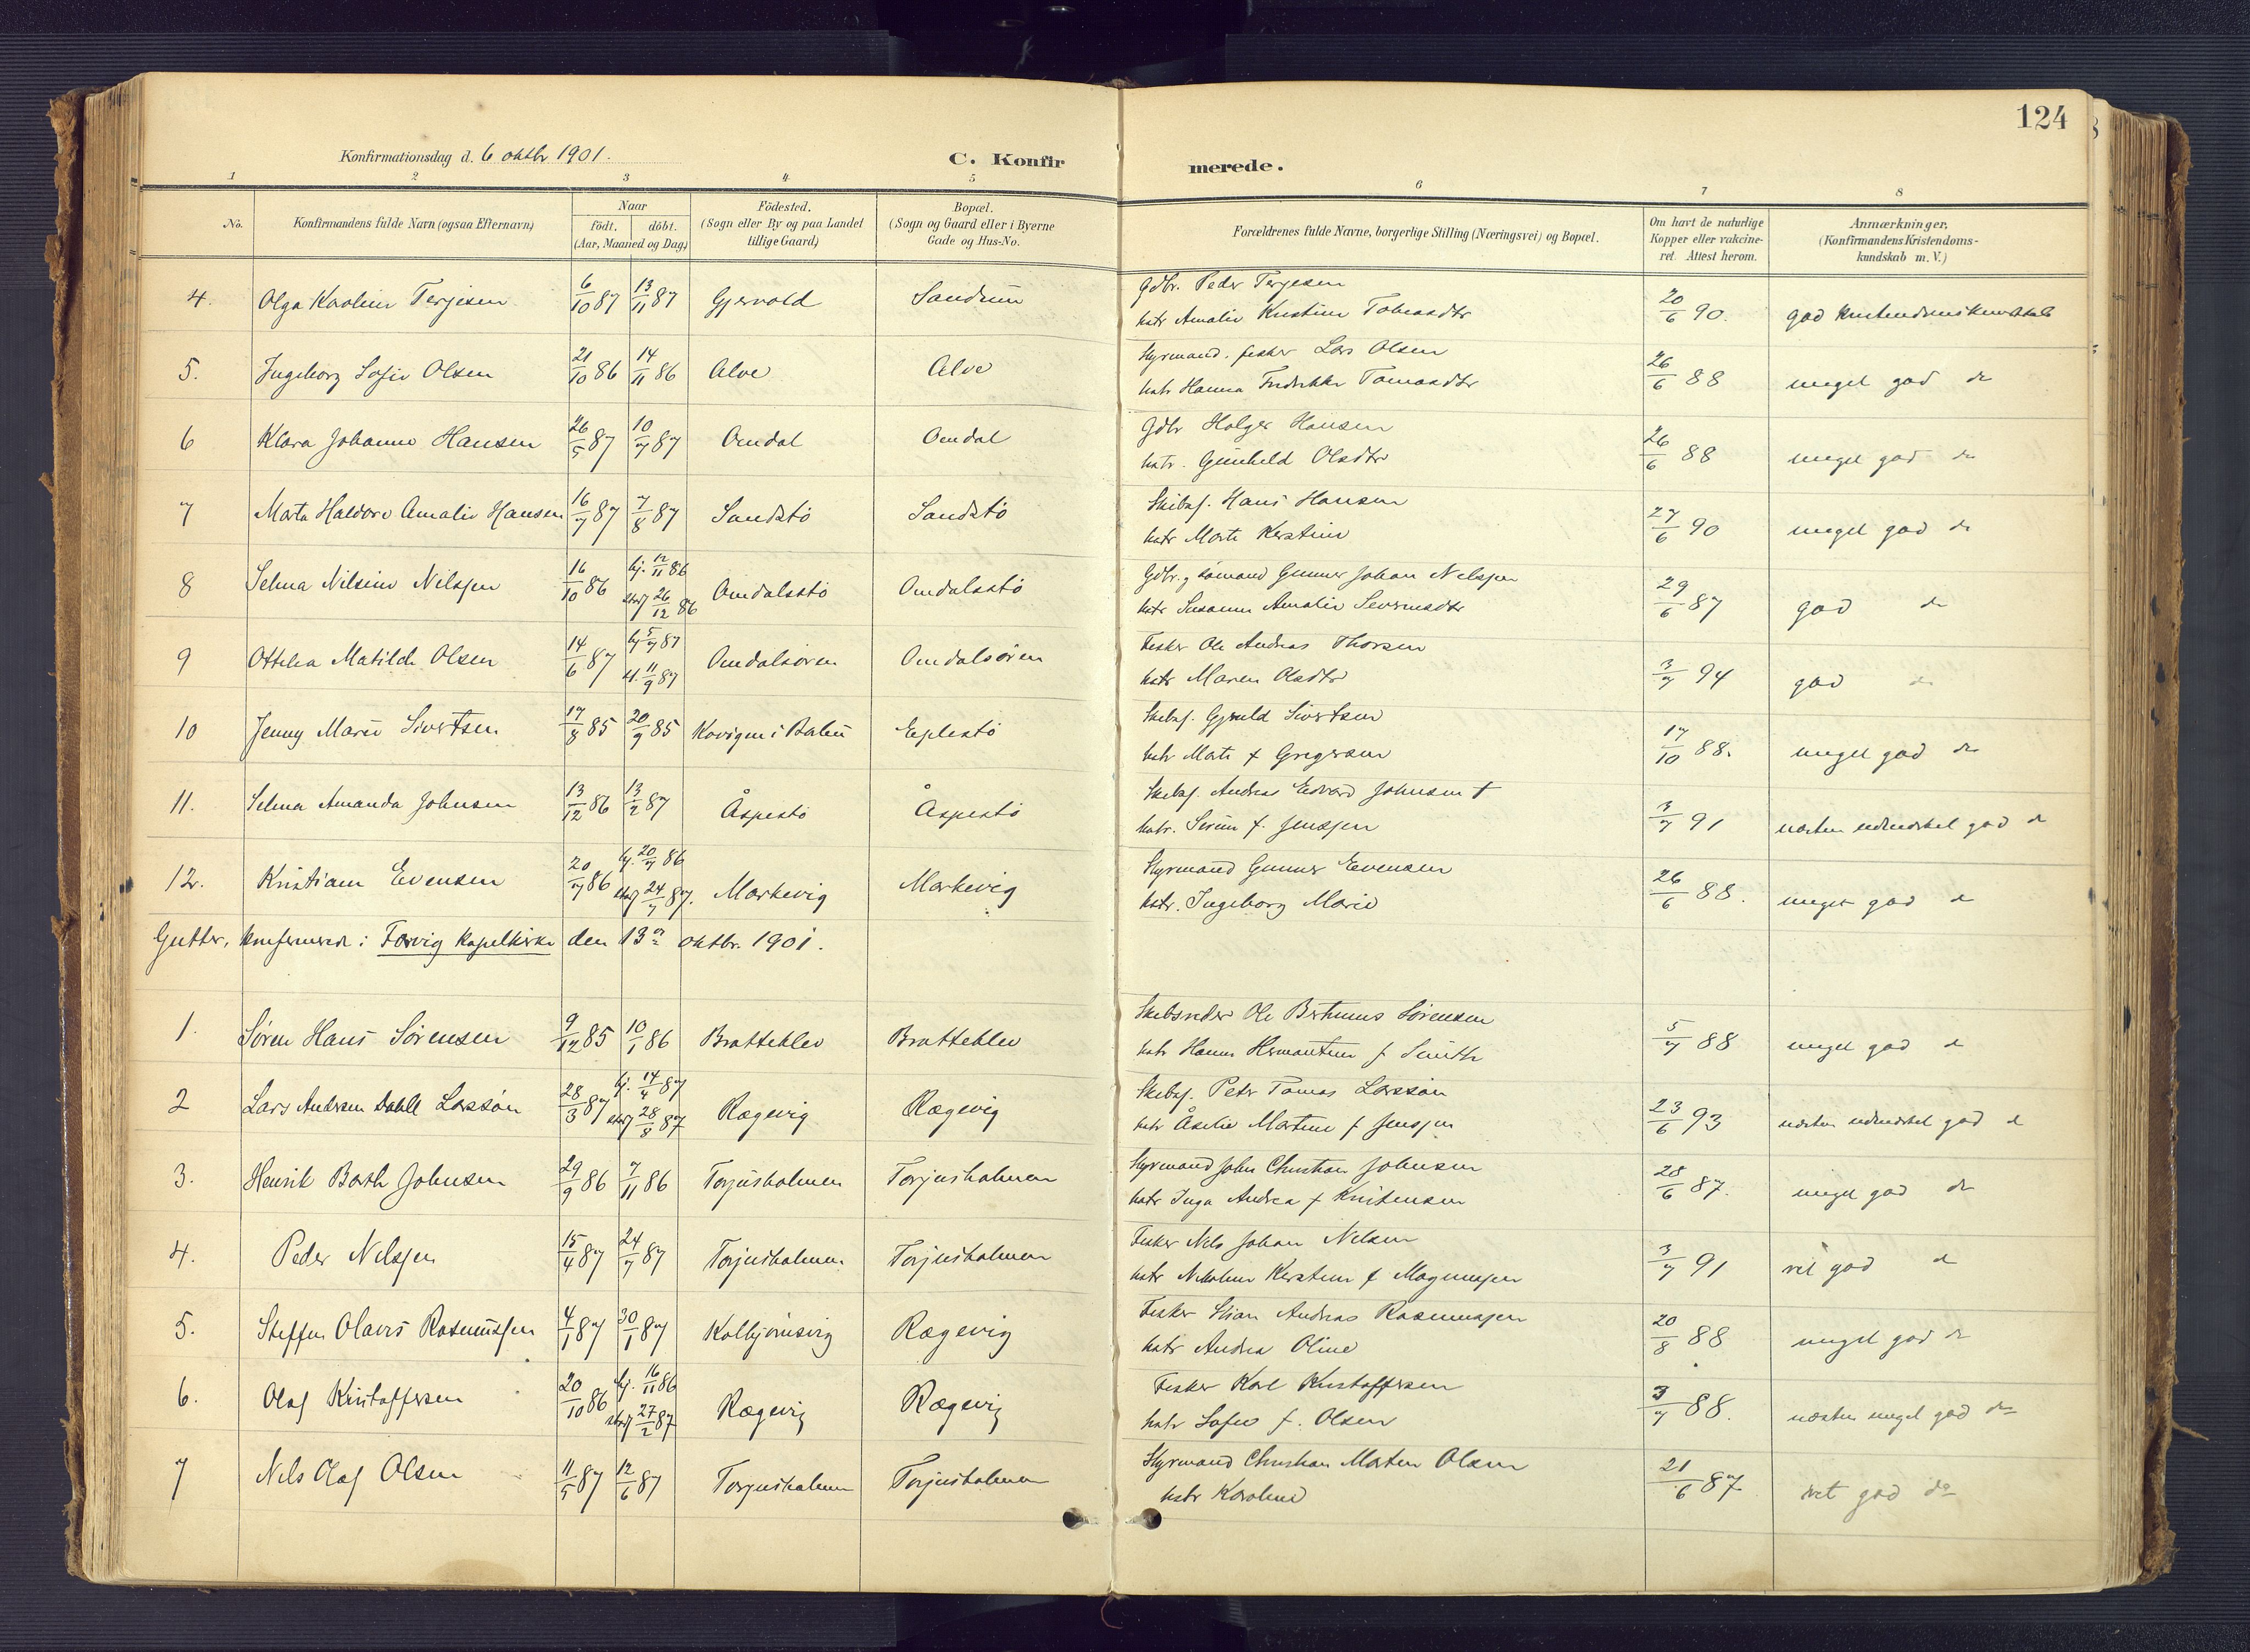 124
Konfirmationsdag d. 6 oktbr 1901.
C. Konfirmerede.
1 2 3 4 5 6 7 8
No.
Konfirmandens fulde Navn (ogsaa Efternavn)
Naar
födt. döbt.
(Aar, Maaned og Dag)
Födested.
(Sogn eller By og paa Landet
tillige Gaard)
Bopæl.
(Sogn og Gaard eller i Byerne
Gade og Hus-No.
Forældrenes fulde Navne, borgerlige Stilling (Næringsvei) og Bopæl.
Om havt de naturlige
Kopper eller vakcine-
ret. Attest herom.
Anmærkninger.
(Konfirmandens Kristendoms-
kundskab m. V.)
4. Olga Karoline Terjesen 6/10 87 13/11 87 Gjervold Sandum
Gdbr. Peder Terjesen
hstr Amalie Kristine Tobiasdtr 20/6 90. god kristendomskundskab
5. Ingeborg Sofie Olsen 21/10 86 14/11 86 Alve Alve
Styrmand. fisker Lars Olsen
hstr Hanna Fredrikke Tomasdtr 26/6 88 meget god do
6 Klara Johanne Hansen 26/5 87 10/7 87 Omdal Omdal
Gdbr Holger Hansen
hstr. Gunhild Olsdtr 26/6 88 meget god do
7 Marta Haldora Amalie Hansen 16/7 87 7/8 87 Sandstö Sandstö
Skibsf. Hans Hansen
hstr Marte Kerstine 27/6 90 meget god do
8 Selma Nilsine Nilssen 16/10 86 hj. 12/11 86 stadf 26/12 86 Omdalsstö Omdalsstö
Gdbr. og sömand Gunner Johan Nilssen
hstr Susanne Amalie Severinsdtr 29/6 87 god do
9 Ottilia Matilde Olsen 14/6 87 hj 5/7 87 st. 11/9 87 Omdalsören Omdalsören
Fisker Ole Andreas Thorsen
hstr Maren Olsdtr 3/7 94 god do
10 Jenny Marie Sivertsen 17/8 85 20/9 85 Eplestö
Skibsf. Gjeruld Sivertsen
hstr Marte f Gregersen 17/10 88. meget god do
11. Selma Amanda Johnsen 13/12 86 13/2 87 Åspestö Åspestö
Skibsf. Andreas Edvard Johnsen †
hstr. Serine f. Jenssen 3/7 91 næsten udmærket god do
12. Kristiane Evensen 20/7 86 hj. 20/7 86 stadf 24/7 87. Markevig Markevig
Styrmand Gunner Evensen
hstr. Ingeborg Marie 26/6 88. meget god do
Gutter, konfirmerede i Færvig kapelkirke den 13de oktbr. 1901.
1. Sören Hans Sörensen 9/12 85 10/1 86 Brattekleo Brattekleo
Skibsreder Ole Bertinius Sörensen
hstr Hanna Hermantine f Smith 5/7 88 meget god do
2 Lars Andreas Dahll Larssön 28/3 87 hj. 14/4 87 stadf 28/8 87 Rægevig Rægevig
Skibsf. Peter Tomas Larssön
hstr Åselie Martine f Jenssen 23/6 93 næsten udmærket god do
3. Henrik Barth Johnsen 29/9 86 7/11 86 Torjusholmen Torjusholmen
Styrmand John Christian Johnsen
hstr Inga Andrea f Kristensen 28/6 87. meget god do
4. Peder Nilssen 15/4 87 24/7 87 Torjusholmen Torjusholmen
Fisker Nils Johan Nilsen
hstr Nikoline Kerstine f Magnussen 3/7 91 vel god do
5. Steffen Olaves Rasmussen 4/1 87 30/1 87 Kolbjörnsvig Rægevig
Fisker Stian Andreas Rasmussen
hstr Andrea Oline 20/8 88 meget god do
6. Olaf Kristoffersen 20/10 86 hj. 16/11 86 stadf 27/2 87 Rægevig Rægevig
Fisker Karl Kristoffersen
hstr Sofie f. Olsen 3/7 88. næsten meget god do
7 Nils Olaf Olsen 11/5 87 12/6 87 Torjusholmen Torjusholmen
Styrmand Christian Morten Olsen
hstr Karoline 21/6 87 vel god do